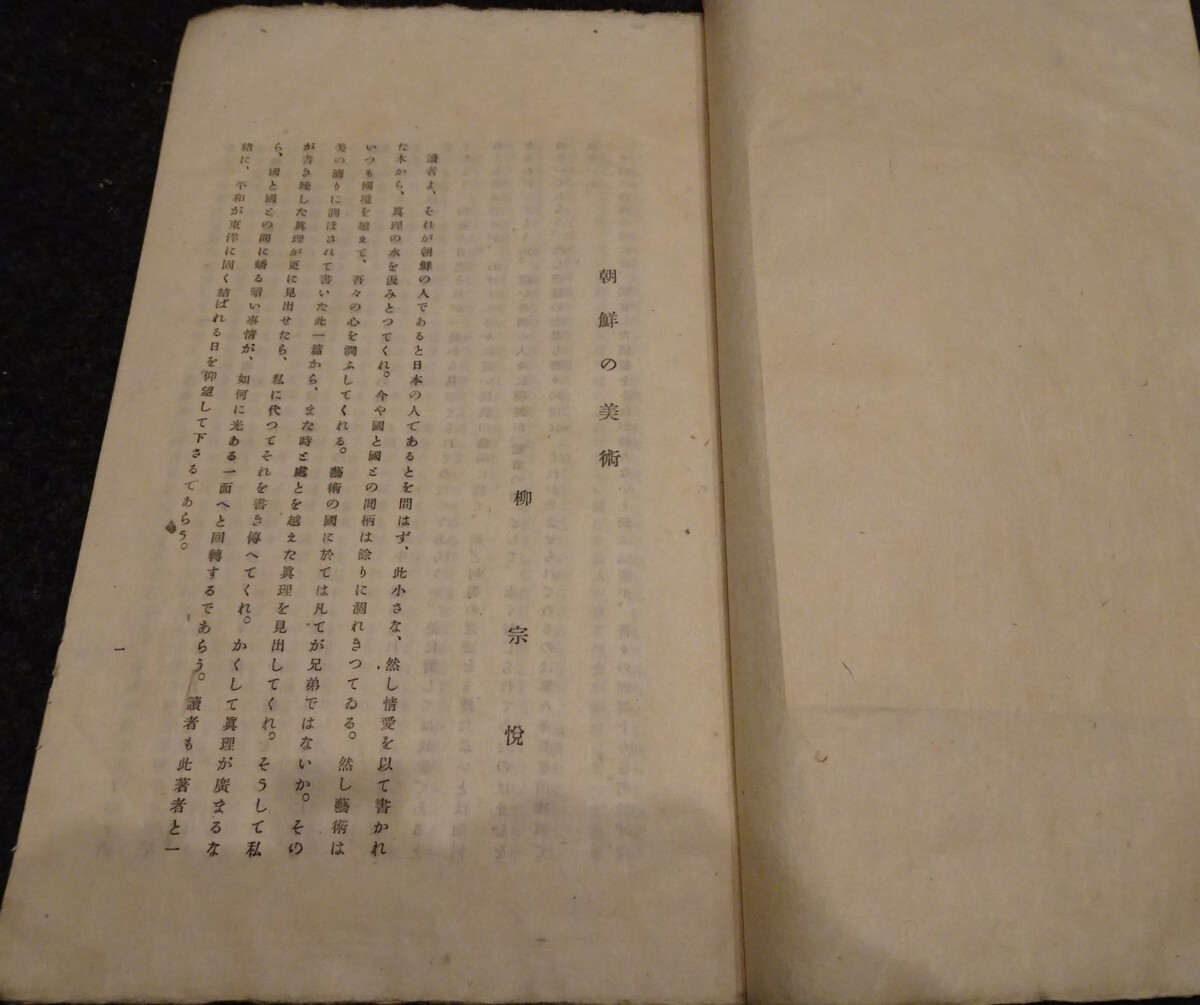 朝鮮の美術
柳宗悅
讀者よ、それが朝鮮の人であると日本の人であるとを問はず、此小さな、然し情愛を以て書かれ
た本から、眞理の水を汲みとつてくれ。今や國と國との間柄は餘りに涸れきつてゐる。然し藝術は
いつも國境を越えて、吾々の心を潤ふしてくれる。藝術の國に於ては凡てが兄弟ではないか。その
美の浦りに潤ほされて書いた此一篇から、また時と處とを越えた眞理を見出してくれ。そうして私
が書き殘した眞理が更に見出せたら、私に代つてそれを書き傳へてくれ。かくして眞理が廣まるな
ら、國と國との間に蟠る暗い事情が、如何に光ある一面へと回轉するであらう。讀者も此著者と一
緒に、不和が東洋に固く結ばれる日を仰望して下さるであらう。
一